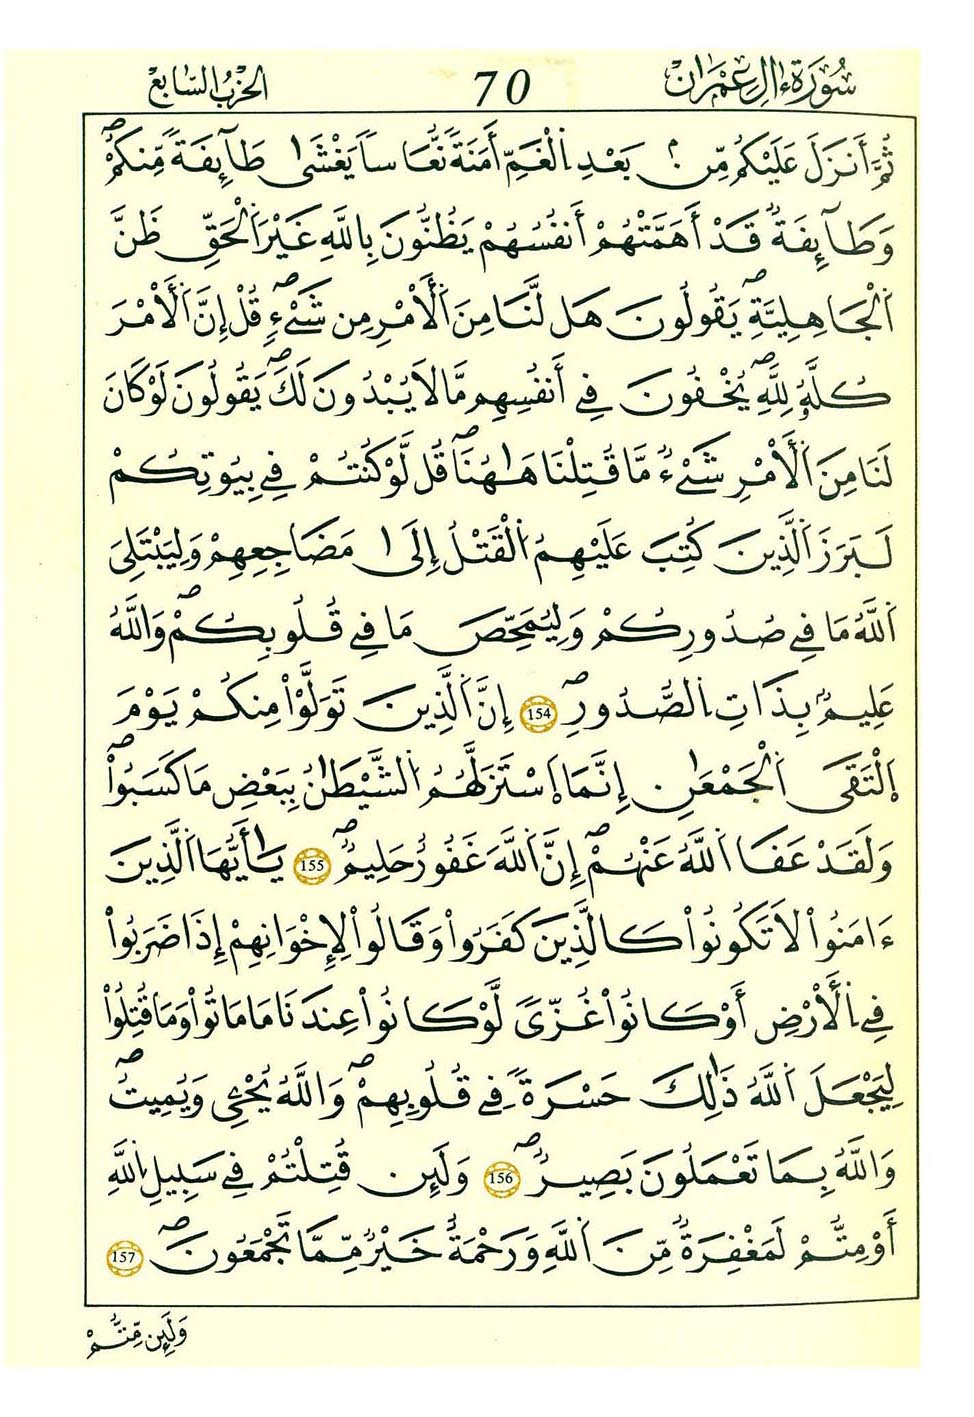 سُورَةُ ءَالِ عِمْرَان 70 الحِزْبُ السَّابِع
ثُمَّ أَنزَلَ عَلَيْكُم مِّنۢ بَعْدِ اِ۬لْغَمِّ أَمَنَةٗ نُّعَاساٗ يَغْشَىٰ طَآئِفَةٗ مِّنكُمْۖ
وَطَآئِفَةٞ قَدْ أَهَمَّتْهُمْ أَنفُسُهُمْ يَظُنُّونَ بِاللَّهِ غَيْرَ اَ۬لْحَقِّ ظَنَّ
اَ۬لْجَٰهِلِيَّةِۖ يَقُولُونَ هَل لَّنَا مِنَ اَ۬لْأَمْرِ مِن شَےْءٖۖ قُلْ إِنَّ اَ۬لْأَمْرَ
كُلَّهُۥ لِلهِۖ يُخْفُونَ فِےٓ أَنفُسِهِم مَّا لَا يُبْدُونَ لَكَۖ يَقُولُونَ لَوْ كَانَ
لَنَا مِنَ اَ۬لْأَمْرِ شَےْءٞ مَّا قُتِلْنَا هَٰهُنَاۖ قُل لَّوْ كُنتُمْ فِے بِيُوتِكُمْ
لَبَرَزَ اَ۬لذِينَ كُتِبَ عَلَيْهِمُ اُ۬لْقَتْلُ إِلَىٰ مَضَاجِعِهِمْ وَلِيَبْتَلِىَ
اَ۬للَّهُ مَا فِے صُدُورِكُمْ وَلِيُمَحِّصَ مَا فِے قُلُوبِكُمْۖ وَاللَّهُ
عَلِيمُۢ بِذَاتِ اِ۬لصُّدُورِۖ 154 إِنَّ اَ۬لذِينَ تَوَلَّوْاْ مِنكُمْ يَوْمَ
اَ۪لْتَقَى اَ۬لْجَمْعَٰنِ إِنَّمَا اَ۪سْتَزَلَّهُمُ اُ۬لشَّيْطَٰنُ بِبَعْضِ مَا كَسَبُواْۖ
وَلَقَدْ عَفَا اَ۬للَّهُ عَنْهُمْۖ إِنَّ اَ۬للَّهَ غَفُورٌ حَلِيمٞۖ 155 يَٰٓأَيُّهَا اَ۬لذِينَ
ءَامَنُواْ لَا تَكُونُواْ كَالذِينَ كَفَرُواْ وَقَالُواْ لِإِخْوَٰنِهِمْ إِذَا ضَرَبُواْ
فِے اِ۬لْأَرْضِ أَوْ كَانُواْ غُزّىٗ لَّوْ كَانُواْ عِندَنَا مَا مَاتُواْ وَمَا قُتِلُواْ
لِيَجْعَلَ اَ۬للَّهُ ذَٰلِكَ حَسْرَةٗ فِے قُلُوبِهِمْۖ وَاللَّهُ يُحْيِۦ وَيُمِيتُۖ
وَاللَّهُ بِمَا تَعْمَلُونَ بَصِيرٞۖ 156 وَلَئِن قُتِلْتُمْ فِے سَبِيلِ اِ۬للَّهِ
أَوْ مِتُّمْ لَمَغْفِرَةٞ مِّنَ اَ۬للَّهِ وَرَحْمَةٌ خَيْرٞ مِّمَّا تَجْمَعُونَۖ 157
وَلَئِن مِّتُّمْ